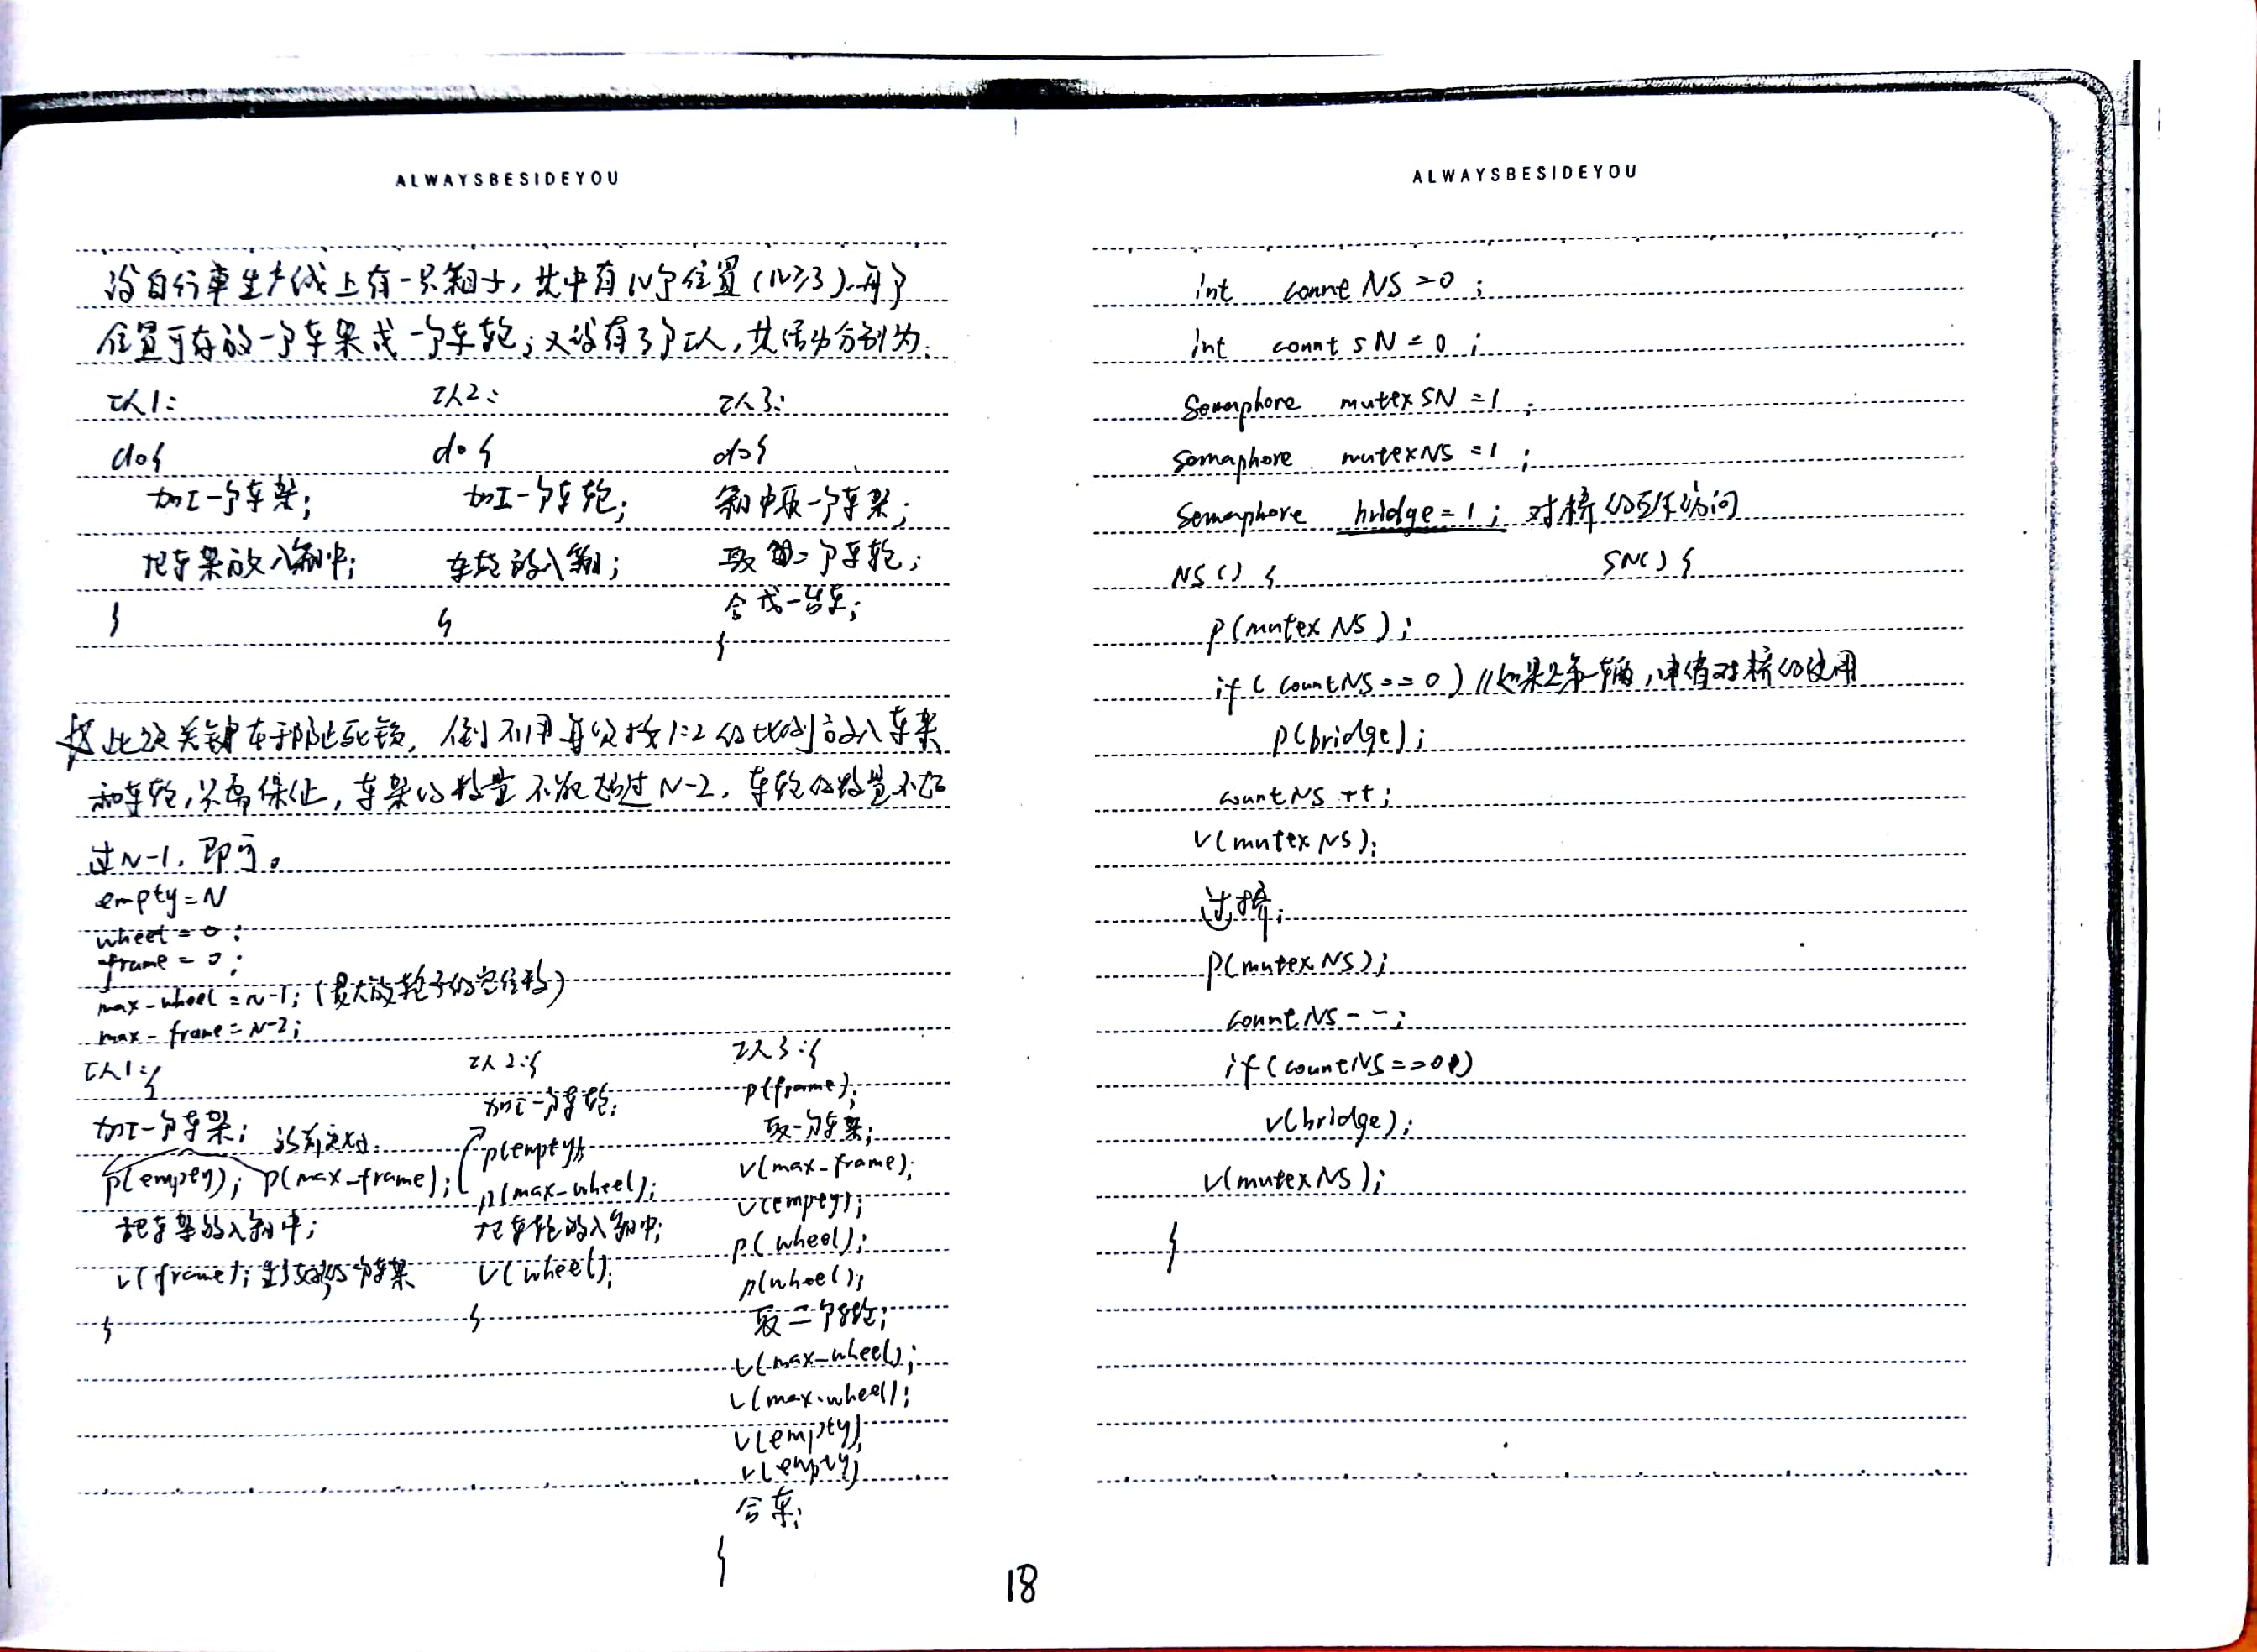 ALWAYSBESIDEYOU
设自行車生产线上有一只箱子，其中有N个位置(N≥3),每个
位置可存放一个车架或一个车轮；又设有3个工人，其活动分别为.
工人1: 工人2: 工人3:
do{ do { do{
加工一个车架; 加工一个车轮; 箱中取一个车架;
把车架放入箱中; 车轮放入箱; 取二个车轮;
合成一台车;
} } }
此次关键在于防止死锁, 倒不用每次按1:2的比例放入车架
和车轮,只需保证, 车架的数量不能超过N-2, 车轮的数量不超
过N-1, 即可。
empty=N
wheel = 0;
frame = 0;
max-wheel = N-1; (最大放轮子的空位数)
max-frame = N-2;
工人1:{ 工人2:{ 工人3:{
加工一个车架; 加工一个车轮; p(frame);
取一个车架;
p(empty); p(max_frame); p(empty); v(max-frame);
p(max-wheel); v(empty);
把车架放入箱中; 把车轮放入箱中; p(wheel);
v(frame); V(wheel); p(wheel);
} } 取二个车轮;
v(max-wheel);
v(max-wheel);
v(empty)
v(empty)
合车;
}
ALWAYSBESIDEYOU
int countNS=0;
int countSN=0;
Semaphore mutexSN=1;
Semaphore mutexNS=1;
Semaphore bridge=1; 对桥的互斥访问
NS() { SN() {
p(mutexNS);
if(countNS==0) //如果是第一辆,申请对桥的使用
p(bridge);
countNS++;
v(mutexNS);
过桥;
p(mutexNS);
countNS--;
if(countNS==0)
v(bridge);
v(mutexNS);
}
18